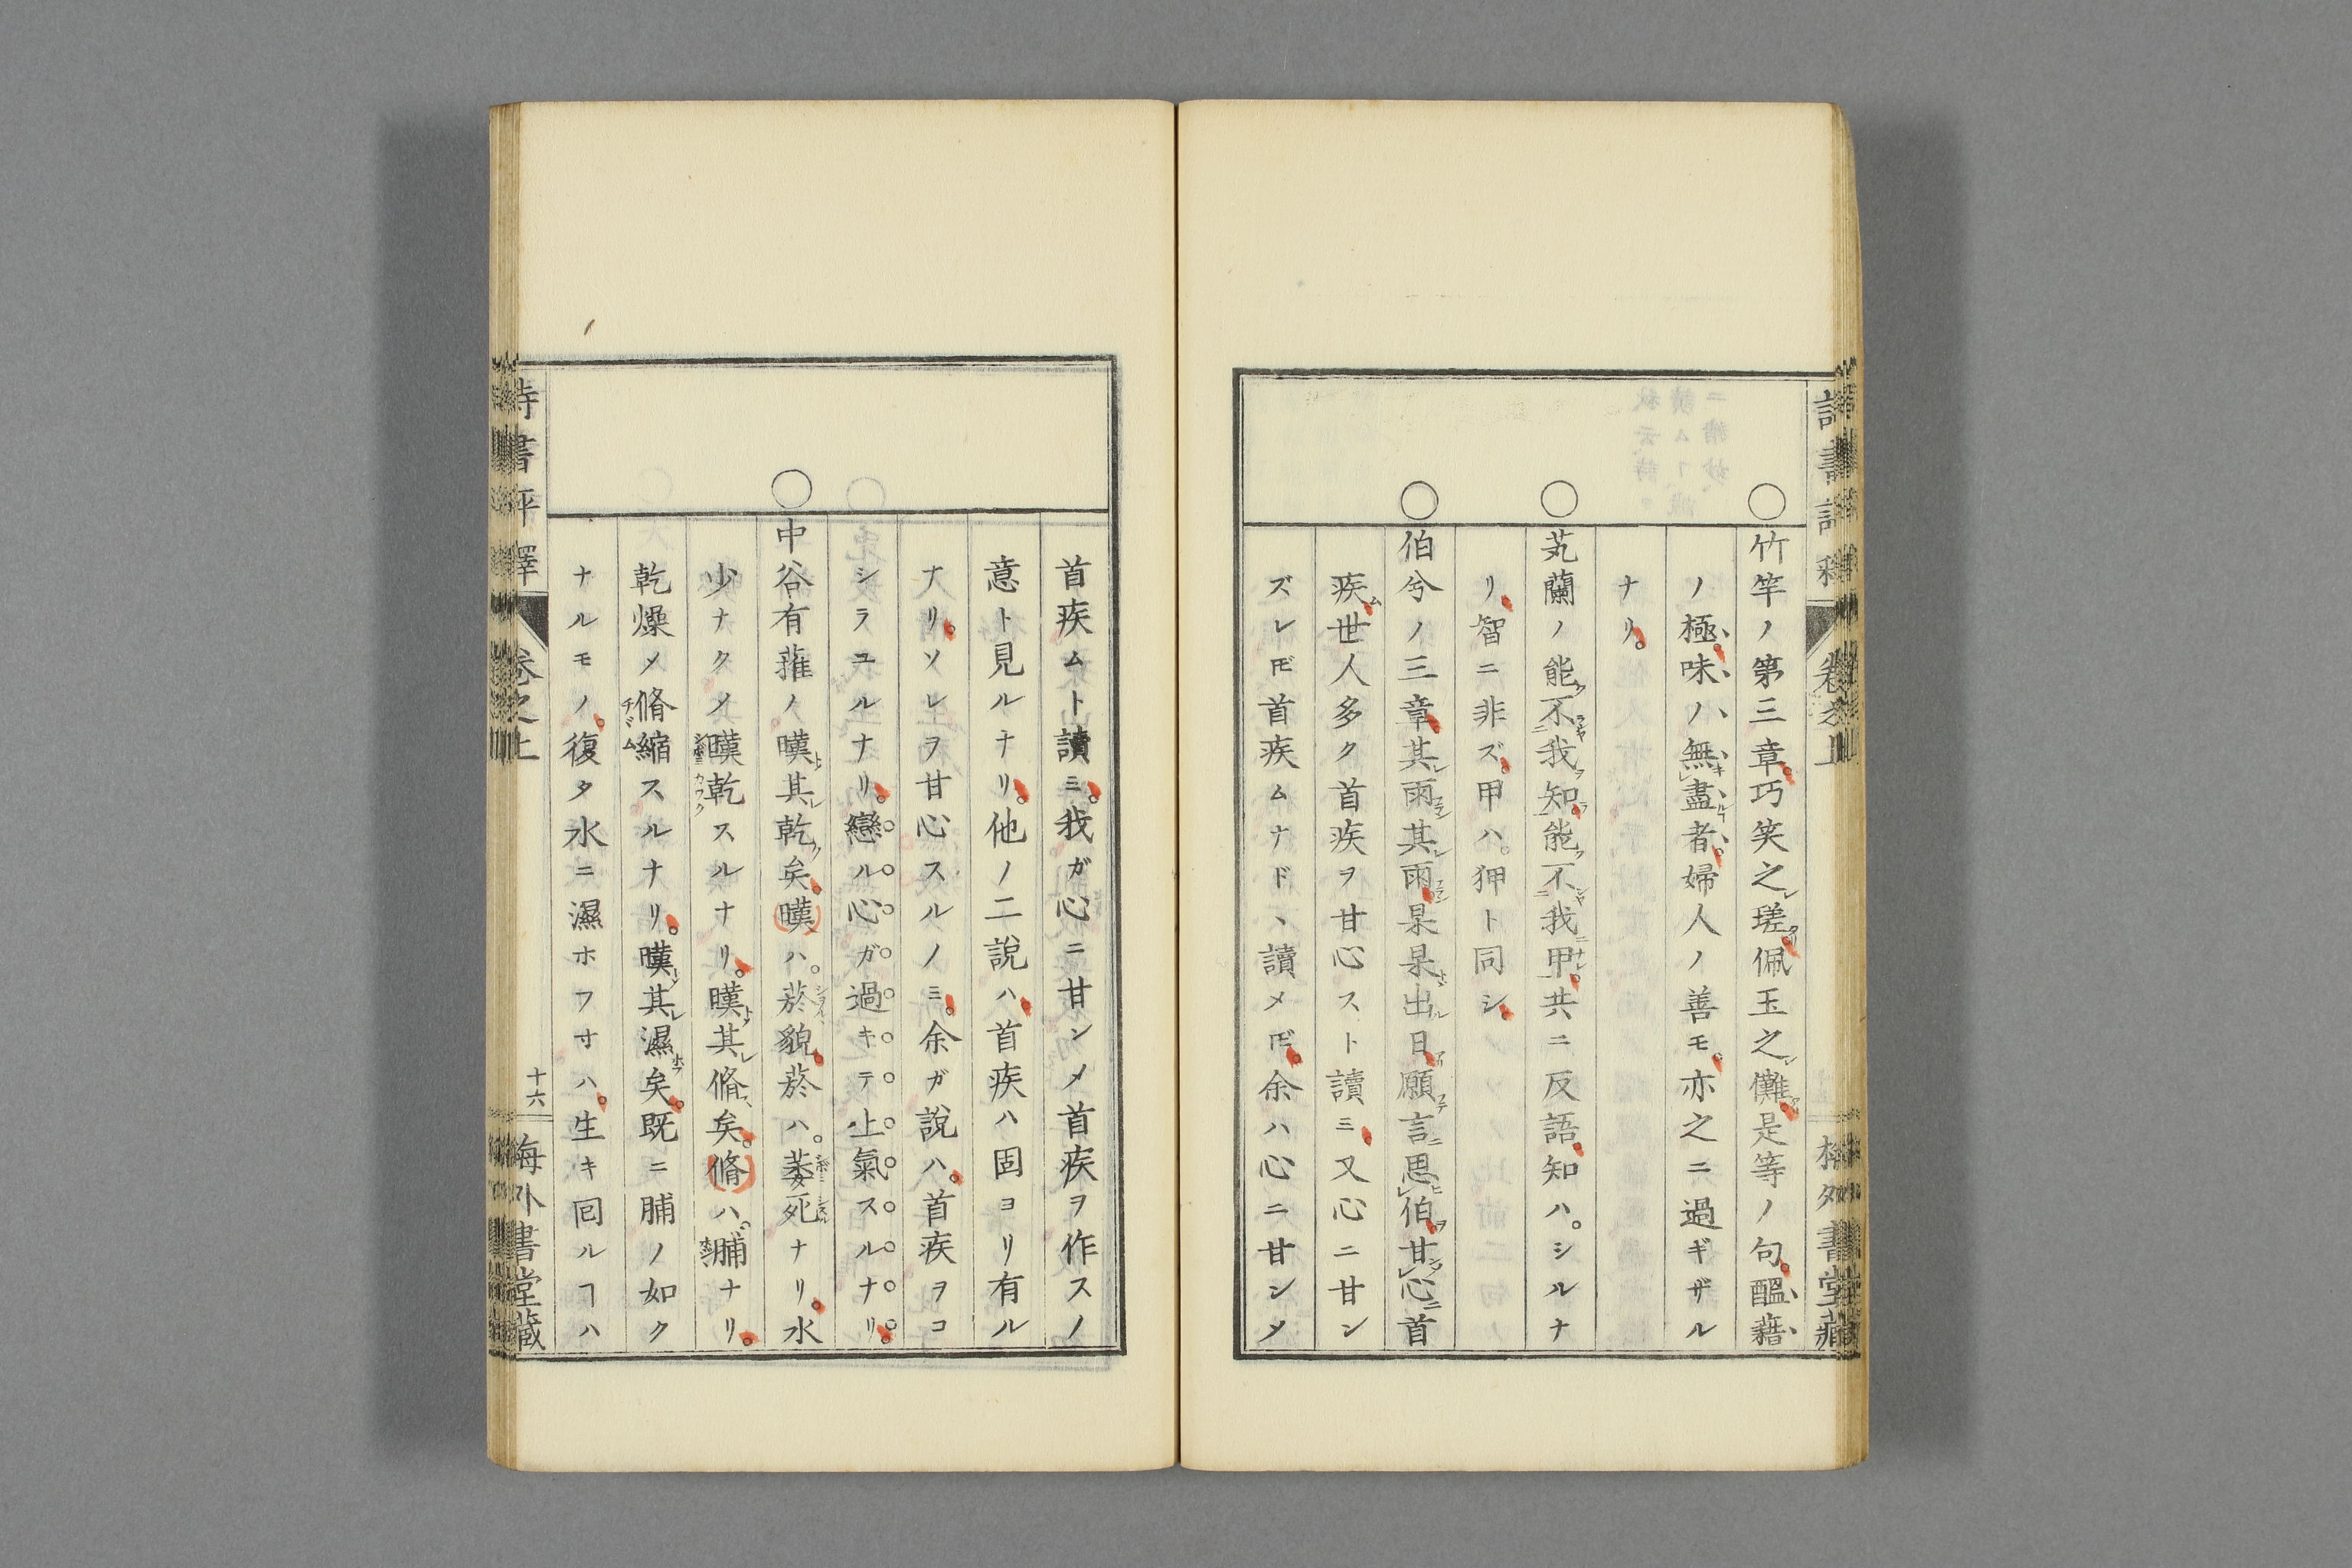 竹竿ノ第三章巧笑之瑳佩玉之儺是等ノ句醞藉
ノ極味ハ無盡者婦人ノ善モ亦之ニ過ギザル
ナリ。
芄蘭ノ能不我知能不我甲共ニ反語知ハ。シルナ
リ智ニ非ズ。甲ハ。狎ト同シ
伯兮ノ三章其雨其雨杲杲出日願言思伯甘心首
疾世人多ク首疾ヲ甘心スト讀ミ又心ニ甘ン
ズレ𪜈首疾ムナド、讀メ𪜈。余ハ心ニ甘ンメ
首疾ムト讀ミ。我ガ心ニ甘ンメ首疾ヲ作スノ
意ト見ルナリ。他ノ二說ハ首疾ハ固ヨリ有ル
ナリ。ソレヲ甘心スルノミ。余ガ說ハ。首疾ヲコ
シラユルナリ。戀ル心ガ過キテ上氣スルナリ。
中谷有蓷ノ暵其乾矣。暵ハ。菸貌菸ハ。萎死ナリ。水
少ナクメ暵乾スルナリ。暵其脩矣。脩ハ。脯ナリ。
乾燥メ脩縮スルナリ。暵其濕矣。既ニ脯ノ如ク
ナルモノ。復タ水ニ濕ホフ寸ハ。生キ囘ルヿハ
詩書評釋
卷之上
十六
海外書堂藏